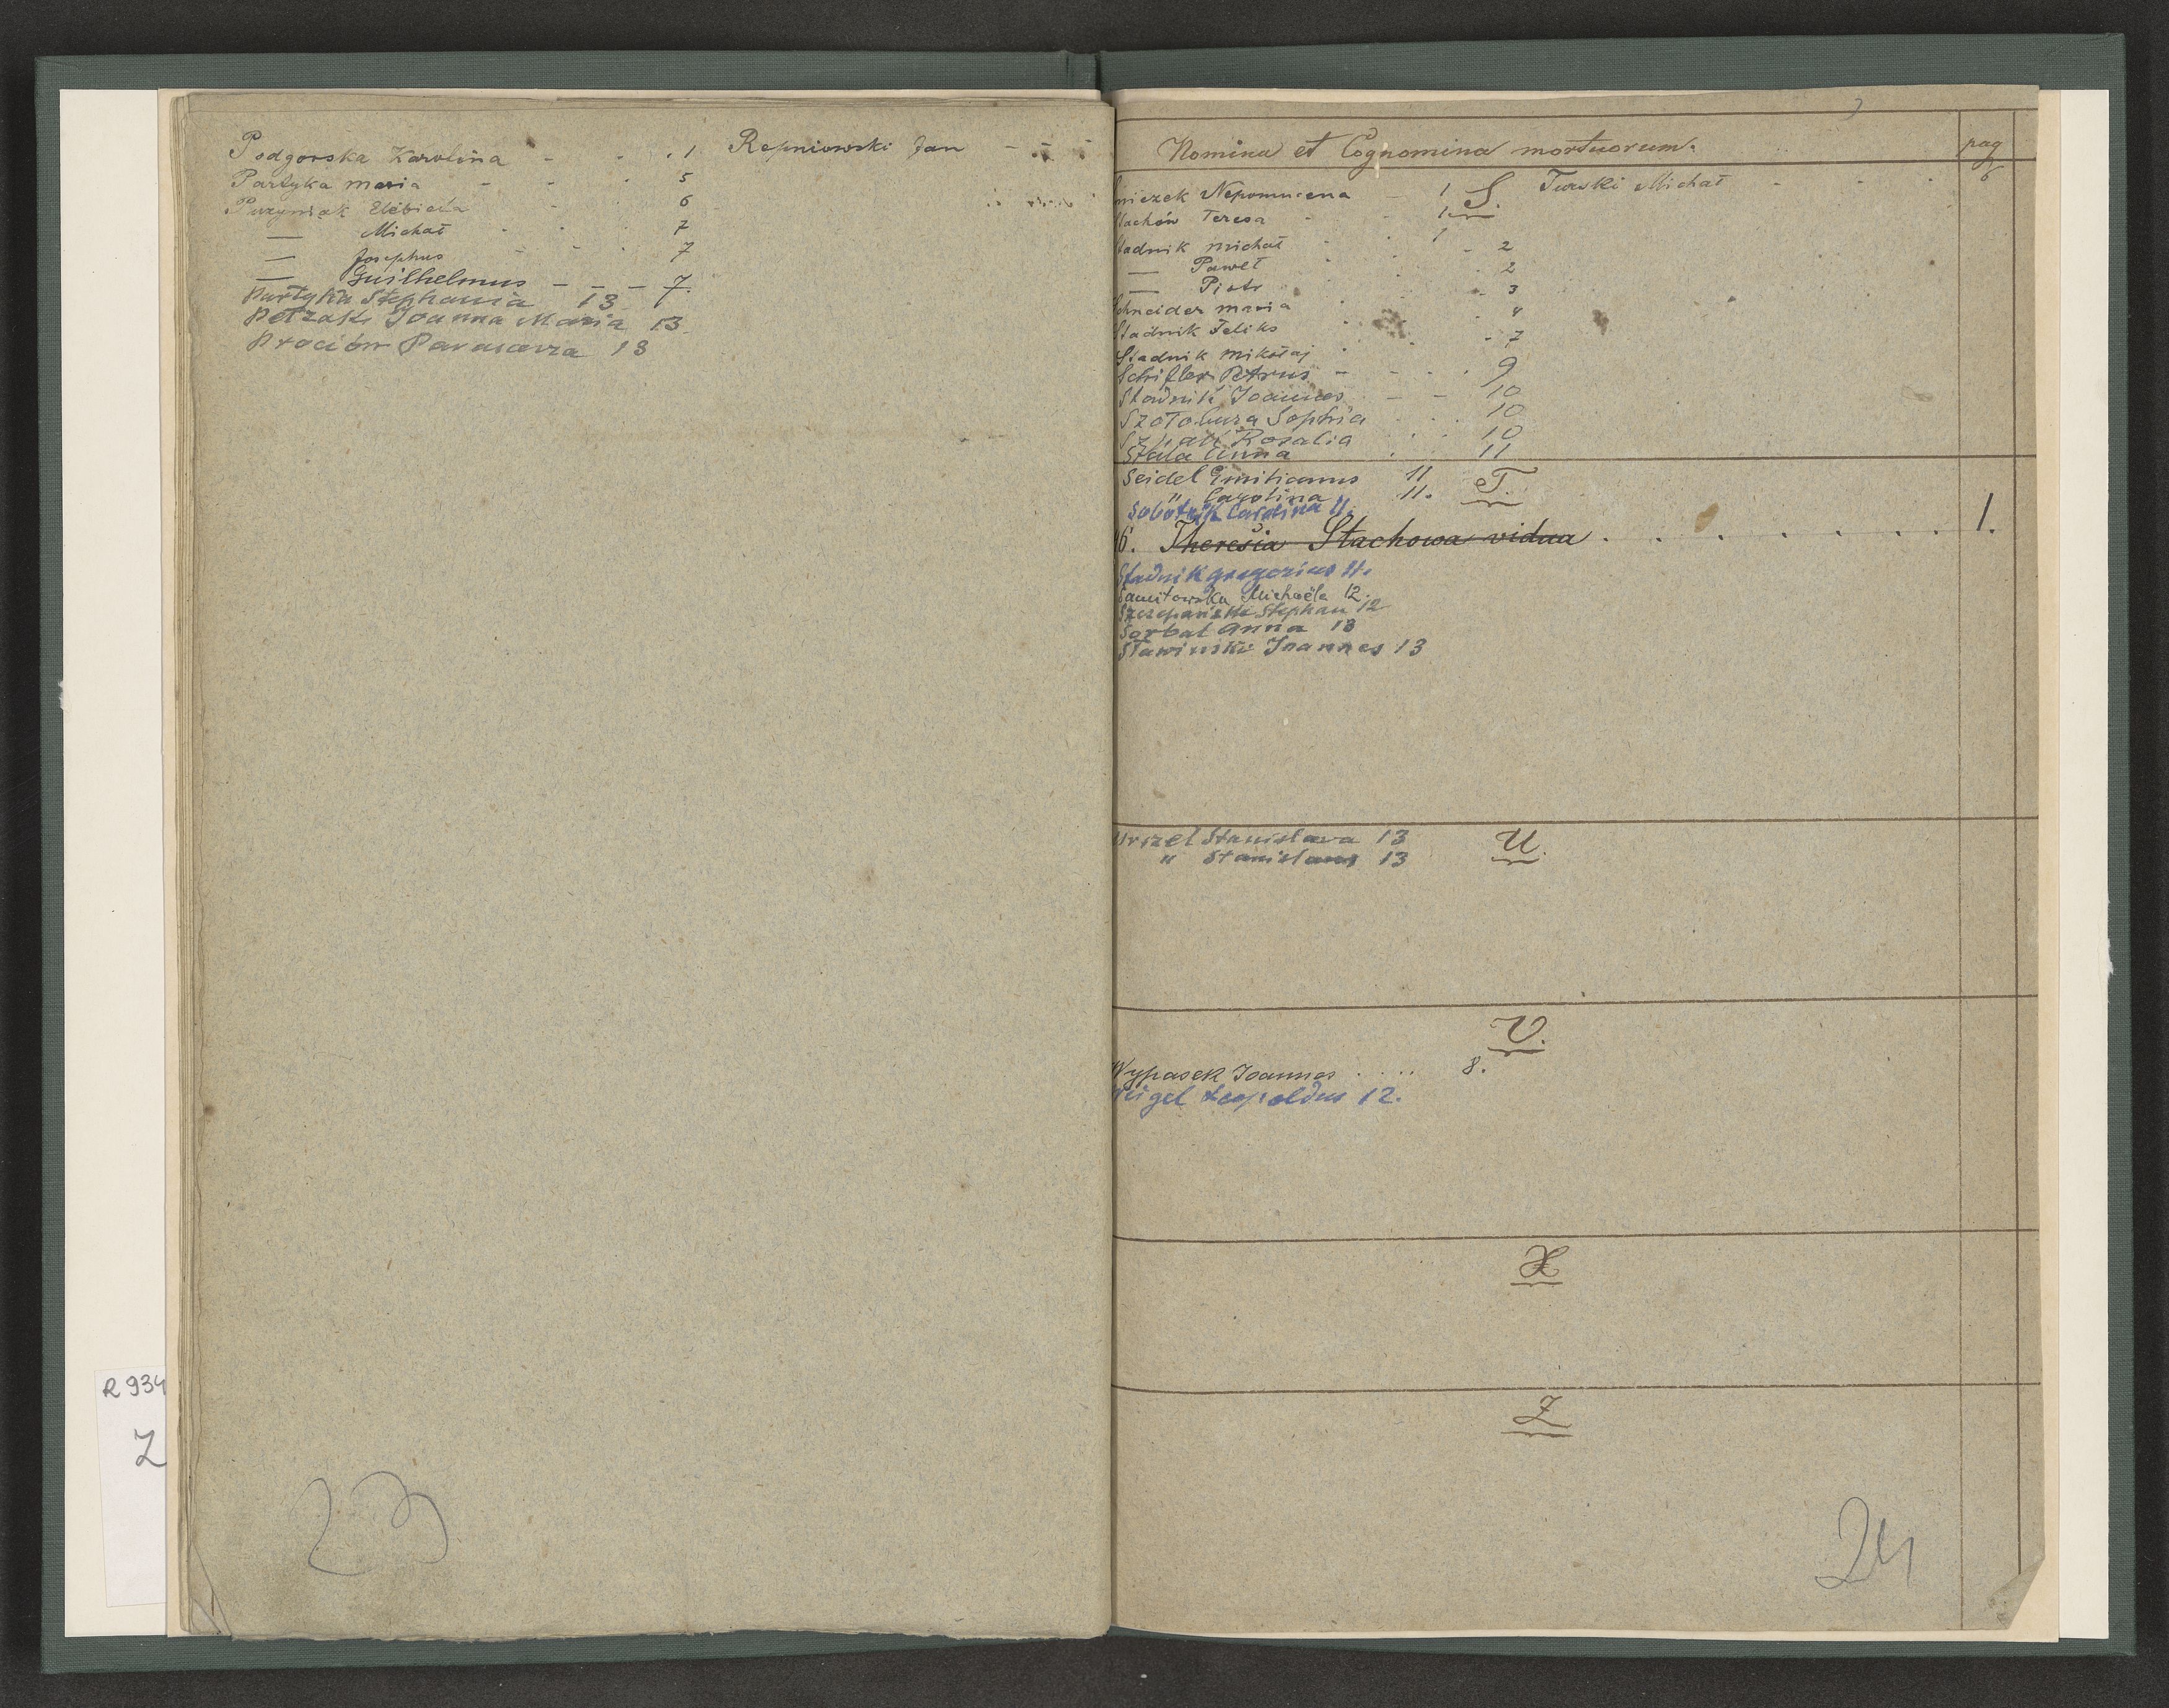 Podgorska Karolina - - . 1
Partyka maria - - . 5
Purzyniak Elżbieta - . 6
— Michał - . 7
— Josephus - - . 7
— Guilhelmus - - - 7.
Partyka Stephania 13
Petrzak Joanna Maria 13
Prociów Parascevia 13
Repniowski Jan - -
23
R 934
Z
Nomina et Cognomina mortuorum. pag
Śnieżek Nepomucena - 1 S. Turski Michał - - . 6
Stachów Teresa - - 1.
Stadnik Michał - 1 - 2
— Paweł . . 2
— Piotr . . 3
Schneider maria . . 4
Stadnik Feliks . . - 7
Stadnik mikołaj .
Schifler Petrus - - . . 9
Stadnik Joannes - - 10
Szotobura Sophia . . 10
Rosalia . . 10
Anna . 11
Seidel Emilianus 11 T.
" Carolina 11.
Sobotnik Carolina 11.
6. Theresia Stachowa vidua . . . . . . . . 1.
Stadnik gregorius 11.
Michaëla 12.
Szczepański Stephan 12
Sorbat Anna 13
Sławiński Joannes 13
Urszel Stanislava 13 U.
" Stanislaus 13
V.
Wypasek Joannes . . . . 8.
Weigel Leopoldus 12.
X
Z
24